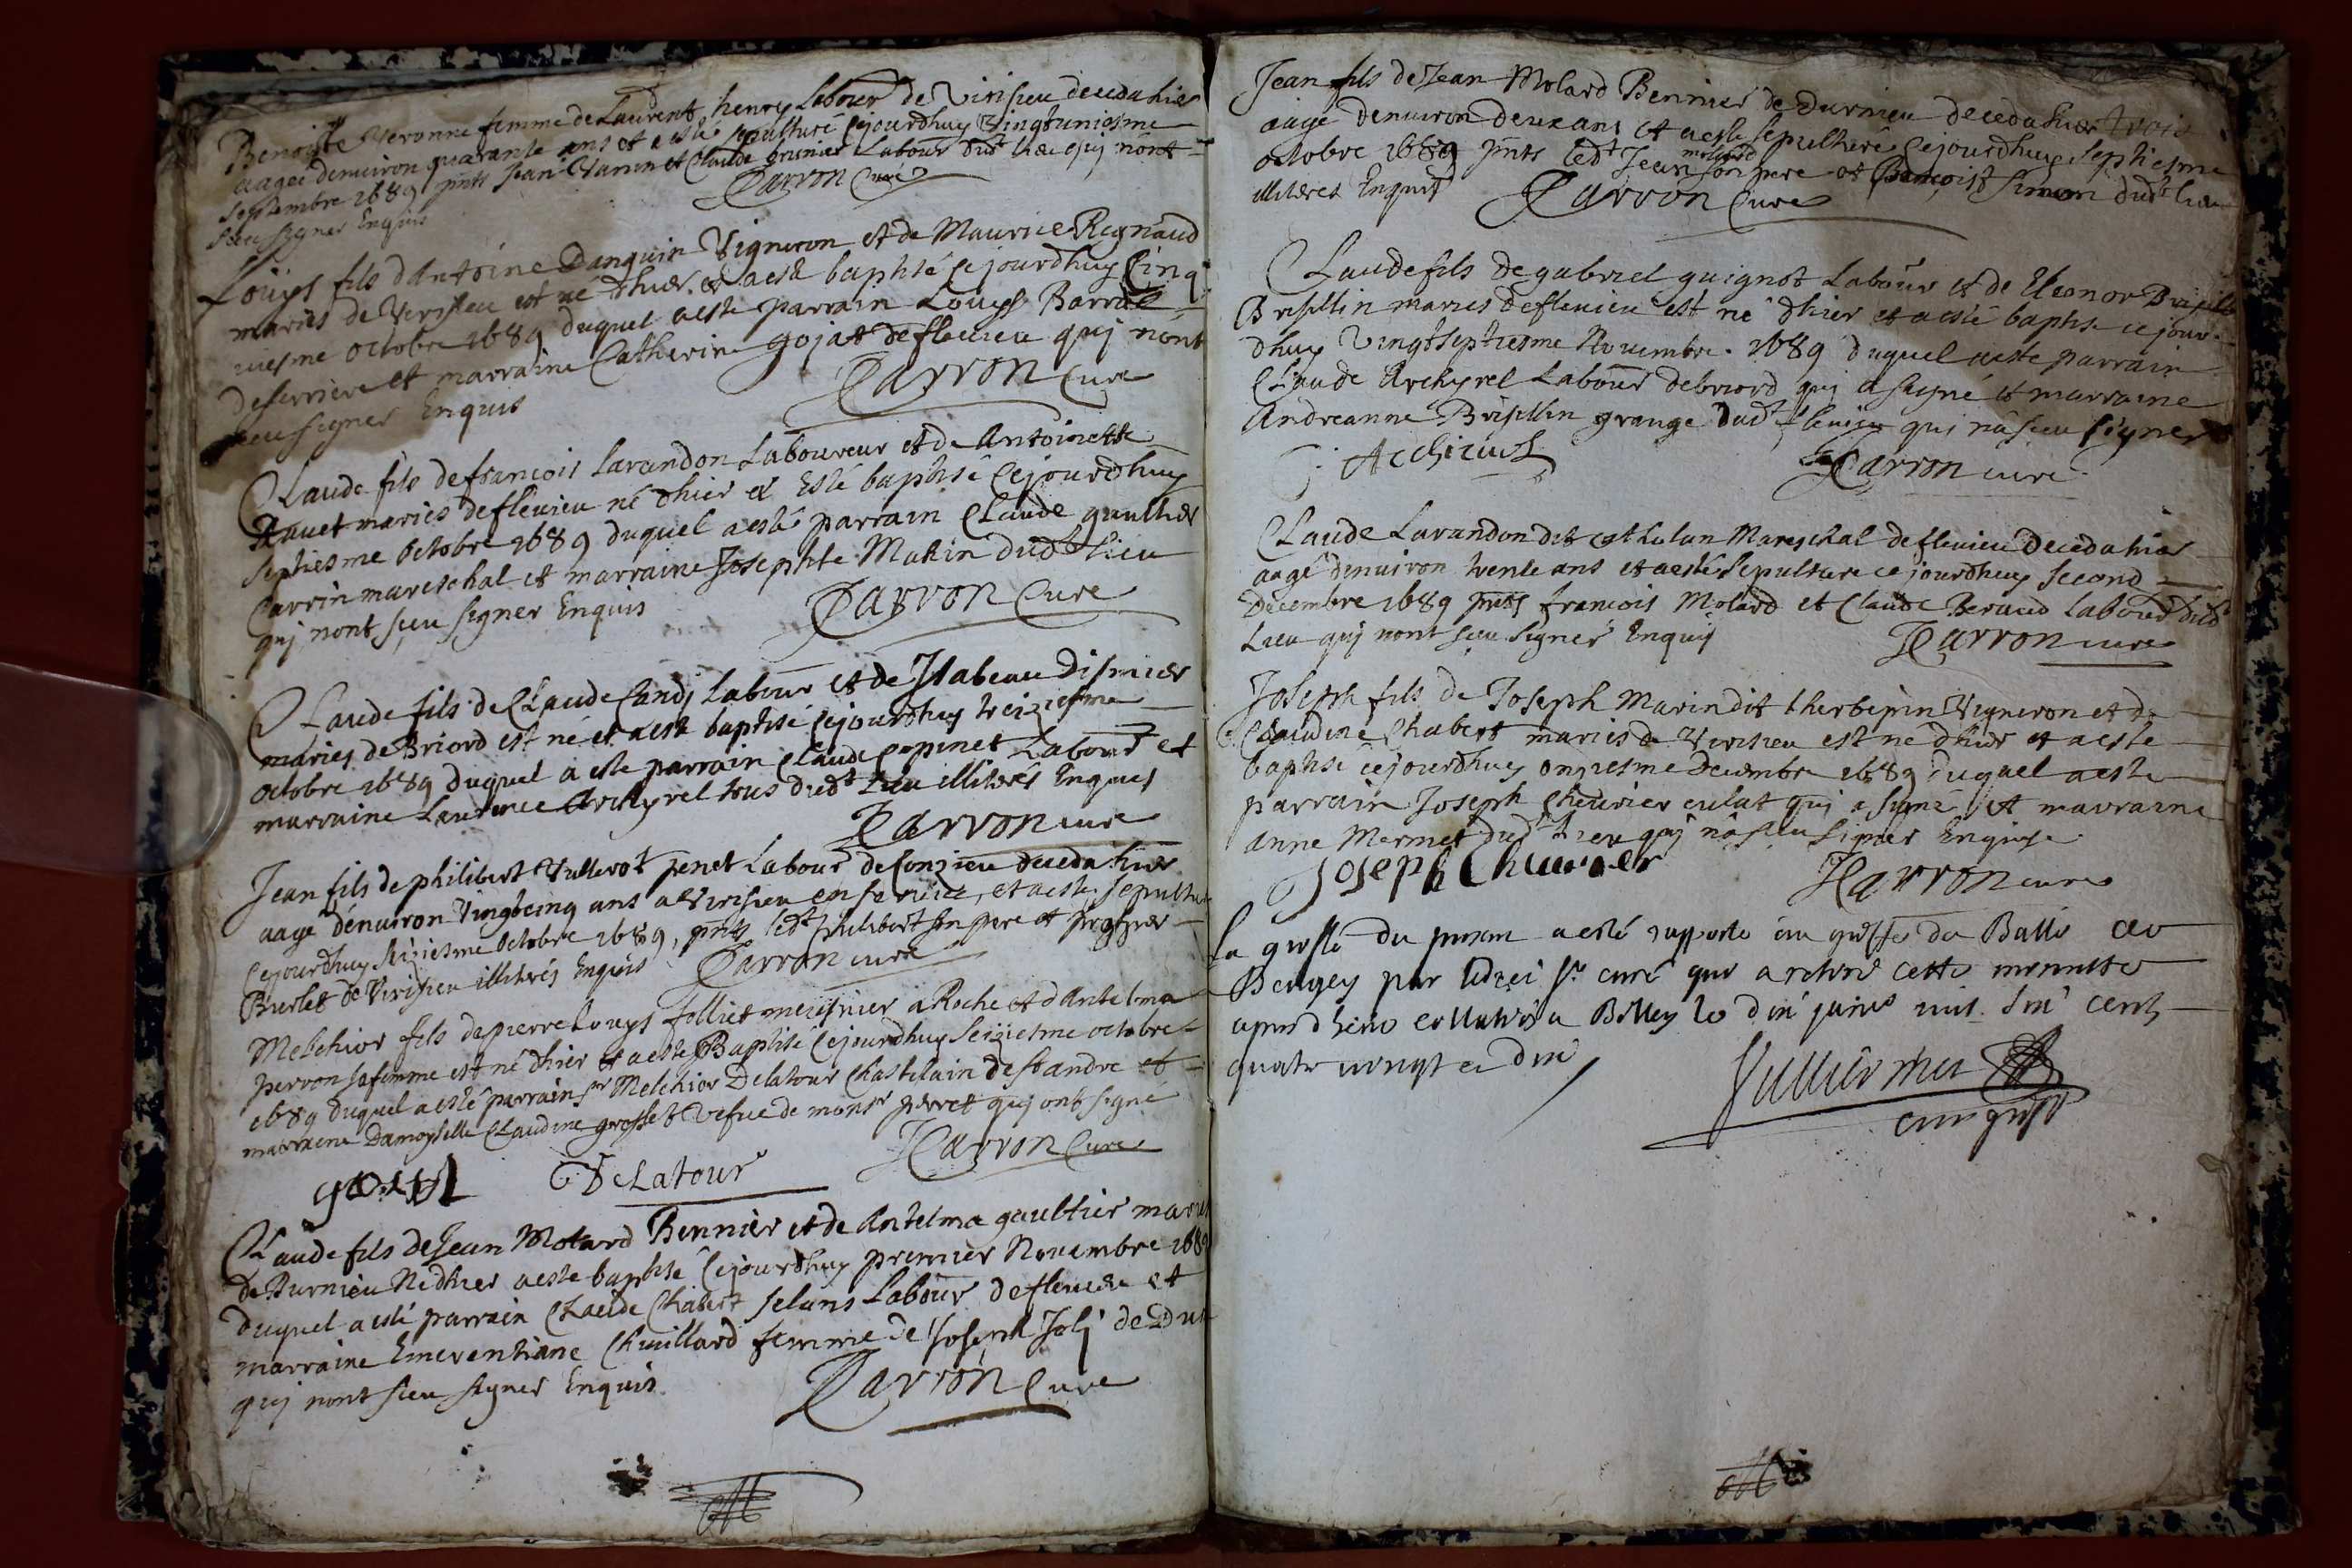 Benoiste Veronne femme de Laurent henry Labour de Virisieu deceda hier
aagee denuiron quarante ans et a esté sepulturé cejourdhuy Vingtuniesme
septembre 1689 pnts Jean Vanin et Claude brunier Labour dudt lieu qui nont
sceu signer Enquis
Darron Curé
Louys fils d'Antoine Danguin Vigneron et de Maurice Reynaud
mariés de Virisieu est né dhier et a esté baptisé cejourdhuy Cinq
uiesme octobre 1689 duquel a este parrain Louys Barral
deserriere et marraine Catherine gojat de fleuieu quj nont
sceu signer Enquis
Darron Cure
Claude fils de francois Larandon Laboureur et de Antoinette
Auuet mariés defleuieu né dhier et Esté baptisé Cejourdhuy
septiesme Octobre 1689 duquel a esté parrain Claude gaultier
Carrin mareschal et marraine Josephte Marin dudt lieu
quj nont sceu signer Enquis
Darron Cure
Claude fils de Claude Candj Labour et de Jsabeau Disnier
mariés de Briord est né et a esté baptisé cejourdhuy treiziesme
octobre 1689 duquel a este parrain Claude Copinet Labour et
marraine Laurence Archyrel tous dudt Lieu illiterés Enquis
Darron cure
Jean fils de philibert Vullerot penet Labour de Conzieu deceda hier
aagé denuiron Vingtcinq ans a Virisieu en seruice, et a esté sepultu
cejourdhuy seiziesme Octobre 1689, pnts ledt philibert son pere et prosper
Burlet de Virisieu illiterés Enquis
Darron curé
Melchior fils de pierre Louys folliet meusnier a Roche et d'Antelma
perron sa femme est né dhier et a esté Baptisé Cejourdhuy seiziesme octobre
1689 duquel a esté parrain sr Melchior Delatour Chastelain de st andre et
marraine Damoyselle Claudine grosset vefue de monsr perret quj ont signé
Darron Cure
Delatour
Claude fils de Jean Molard Bennier et de Antelma gaultier mariés
de Durnieu Né dhier a esté baptisé Cejourdhuy premier Nouembre 1689
duquel a esté parrain Claude Chabert Labour de fleuieu et
marraine Emerentiane Chuillard femme de Joseph Jolj de Dur
quj nont sceu signer Enquis
Darron Cure
Jean fils de Jean Molard Bennier de Durnieu deceda hier trois
aagé denuiron deux ans et a esté sepulturé cejourdhuy septiesme
octobre 1689 pnts ledt Jean molard son pere et Benoist simon dudt lieu
illiteres Enquis
Darron Cure
Claude fils de gabriel guignot Labour et de Eleonor
Brisillin mariés de fleuieu est né dhier et a esté baptisé ce jour
dhuy Vingtseptiesme Nouembre 1689 duquel a esté parrain
Claude Archyrel Labour de briord quj a signé et marraine
Andreanne Brisillin grange dudt fleuieu qui na sceu signer
Darron curé
Claude Larandon dit Mareschal de fleuieu deceda hier
aagé denuiron trente ans et a esté sepulturé ce jourdhuy second
Decembre 1689 pnts francois Molard et Claude Beraud labour dudt
Lieu quj nont sceu signer Enquis
Darron cure
Joseph fils de Joseph Marin dit therbepin Vigneron et de
Claudine Chabert mariés de Virisieu est né dhier et a esté
baptisé cejourdhuy onziesme Decembre 1689 duquel a esté
parrain Joseph Cheurier culat quj a signé et marraine
Anne Mermet dudt Lieu quj na sceu signer Enquise
Joseph Cheurier
Darron cure
La grosse du a esté rapporté au greffe du Balle de
Beugey par ledit sr curé qui a retiré cette minutte
apres heue collation a Belley le dix juin mil six cent
quatre vingt et dix
Vulliermet